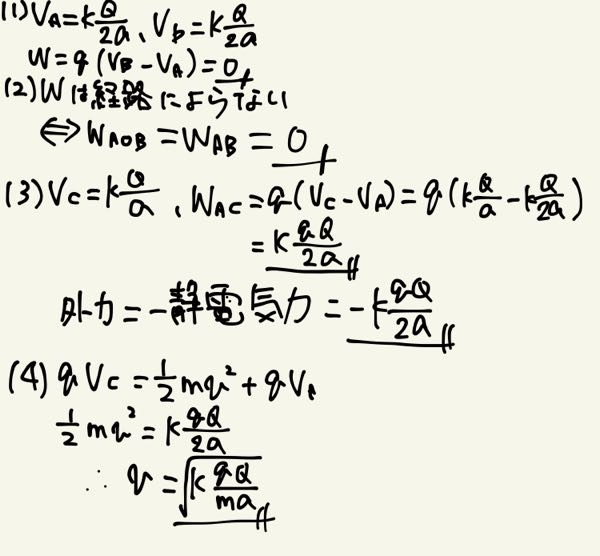 (1) VA=kQ/2a、VB=kQ/2a
W=q(VB-VA)=0
(2)Wは経路によらない
⇔WAOB=WAB=0
(3)VC=kQ/a、WAC=q(VC-VA)=q(kQ/a-kQ/2a)
=kqQ/2a
外力=-静電気力=-kqQ/2a
(4)qVC=1/2mv²+qVA
1/2mv²=kqQ/2a
∴v=√(kqQ/ma)